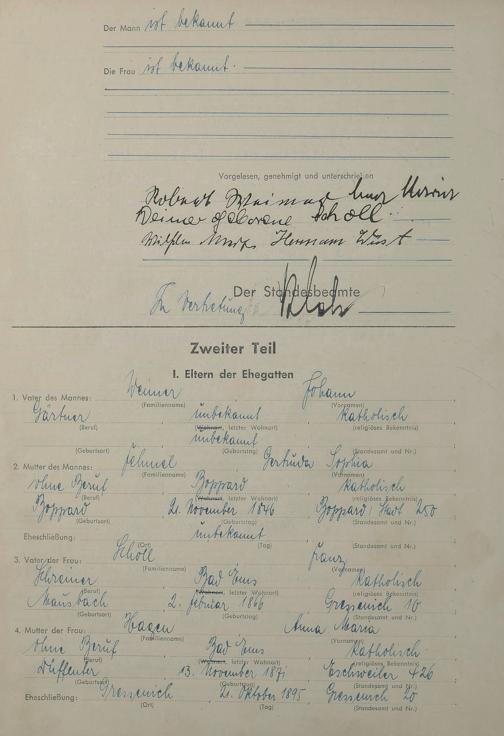 Der Mann ist bekannt
Die Frau ist bekannt.
Vorgelesen, genehmigt und unterschrieben
Robert Weimer
Weimer geborene Scholl
Wilhelm Hermann Wüst
Der Standesbeamte
In Vertretung
Zweiter Teil
I. Eltern der Ehegatten
1. Vater des Mannes: Weimer Johann
(Familienname) (Vornamen)
Gärtner unbekannt katholisch
(Beruf) (Wohnort, letzter Wohnort) (religiöses Bekenntnis)
unbekannt
(Geburtsort) (Geburtstag) (Standesamt und Nr.)
2. Mutter des Mannes: Gertruda Sophia
(Familienname) (Vornamen)
ohne Beruf Boppard katholisch
(Beruf) (Wohnort, letzter Wohnort) (religiöses Bekenntnis)
Boppard 21. November 1846 Boppard Stadt 250
(Geburtsort) (Geburtstag) (Standesamt und Nr.)
Eheschließung: unbekannt
(Ort) (Tag) (Standesamt und Nr.)
3. Vater der Frau: Scholl Franz
(Familienname) (Vorname)
Schreiner Bad Ems katholisch
(Beruf) (Wohnort, letzter Wohnort) (religiöses Bekenntnis)
Mausbach 2. Februar 1866 Gressenich 10
(Geburtsort) (Geburtstag) (Standesamt und Nr.)
4. Mutter der Frau: Hagen Anna Maria
(Familienname) (Vorname)
ohne Beruf Bad Ems katholisch
(Beruf) (Wohnort, letzter Wohnort) (religiöses Bekenntnis)
13. November 1871 Eschweiler 426
(Geburtsort) (Geburtstag) (Standesamt und Nr.)
Eheschließung: Gressenich 21. Oktober 1895 Gressenich 20
(Ort) (Tag) (Standesamt und Nr.)